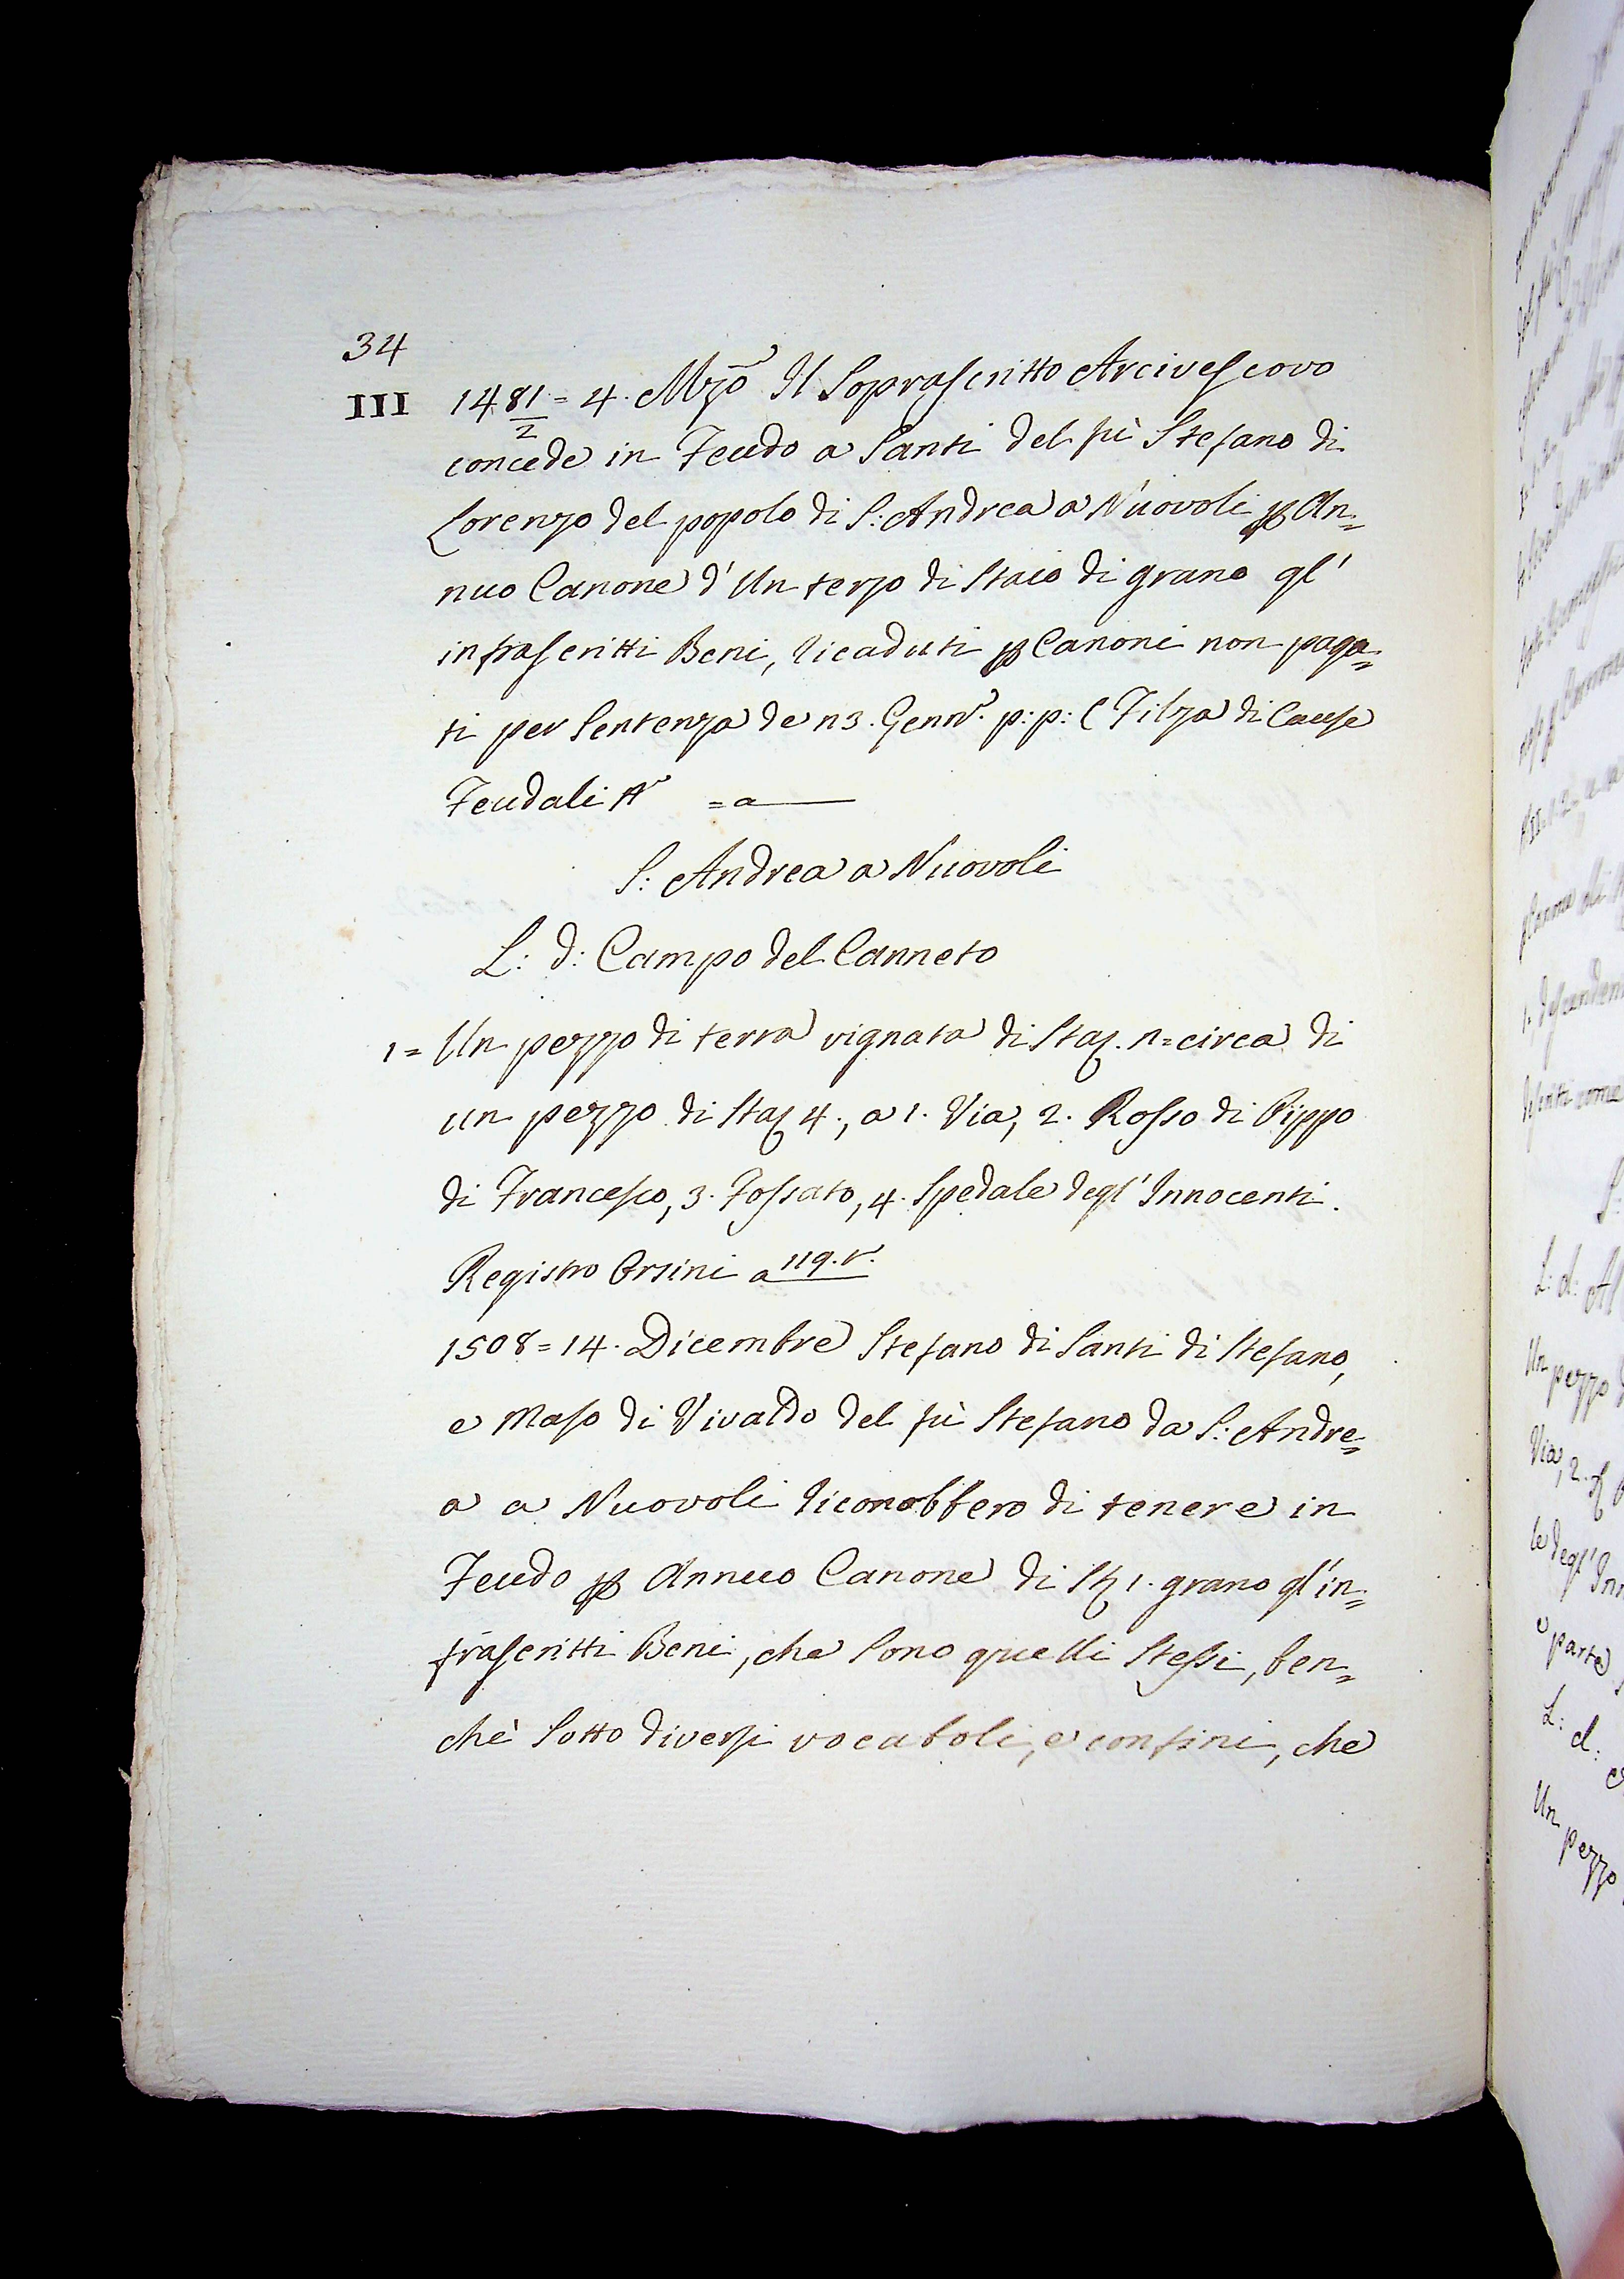 34
III 1481/2 = 4. Mzo Il Soprascritto Arcivescovo
concede in Feudo a Santi del fù Stefano di
Lorenzo del popolo di S: Andrea a Nuovoli p An=
nuo Canone d'Un terzo di Staio di grano gl'
infrascritti Beni, ricaduti p Canoni non paga=
ti per Sentenza de 13. Genn. p: p: ( Filza di Cause
Feudali = a
S: Andrea a Nuovoli
L: d: Campo del Canneto
1 = Un pezzo di terra vignata di Staj. circa di
un pezzo di Staj 4., a 1. Via, 2. Rosso di Pippo
di Francesco, 3. Fossato, 4. Spedale degl'Innocenti.
Registro Orsini a 119. v.
1508 = 14. Dicembre Stefano di Santi di Stefano,
e Maso di Vivaldo del fù Stefano da S: Andre=
a a Nuovoli riconobbero di tenere in
Feudo p Annuo Canone di St 1. grano gl'in=
frascritti Beni, che Sono quelli Stessi, ben=
chè Sotto diversi vocaboli, e confini, che
L: d:
Un pezzo
Via, 2.
e parte
L: d:
Un pezzo